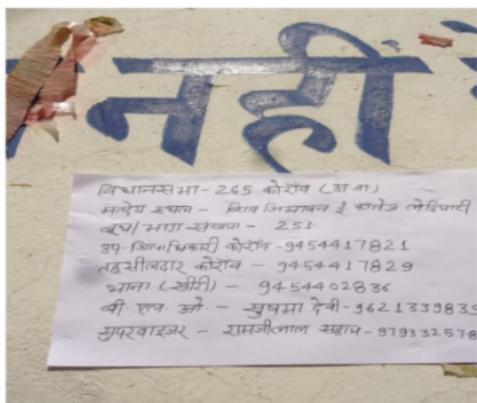 नहीं
विधानसभा - 265 कोरांव (अ.जा.)
मतदेय स्थल - शिव जियावन ई. कालेज लेडियारी
बूथ/भाग संख्या - 251
उप-जिलाधिकारी कोरांव -9454417821
तहसीलदार कोरांव - 9454417829
थाना (खीरी) - 9454402836
बी. एल. ओ. - सुषमा देवी-962133983
सुपरवाइजर - रामजीलाल सहाय-979332578